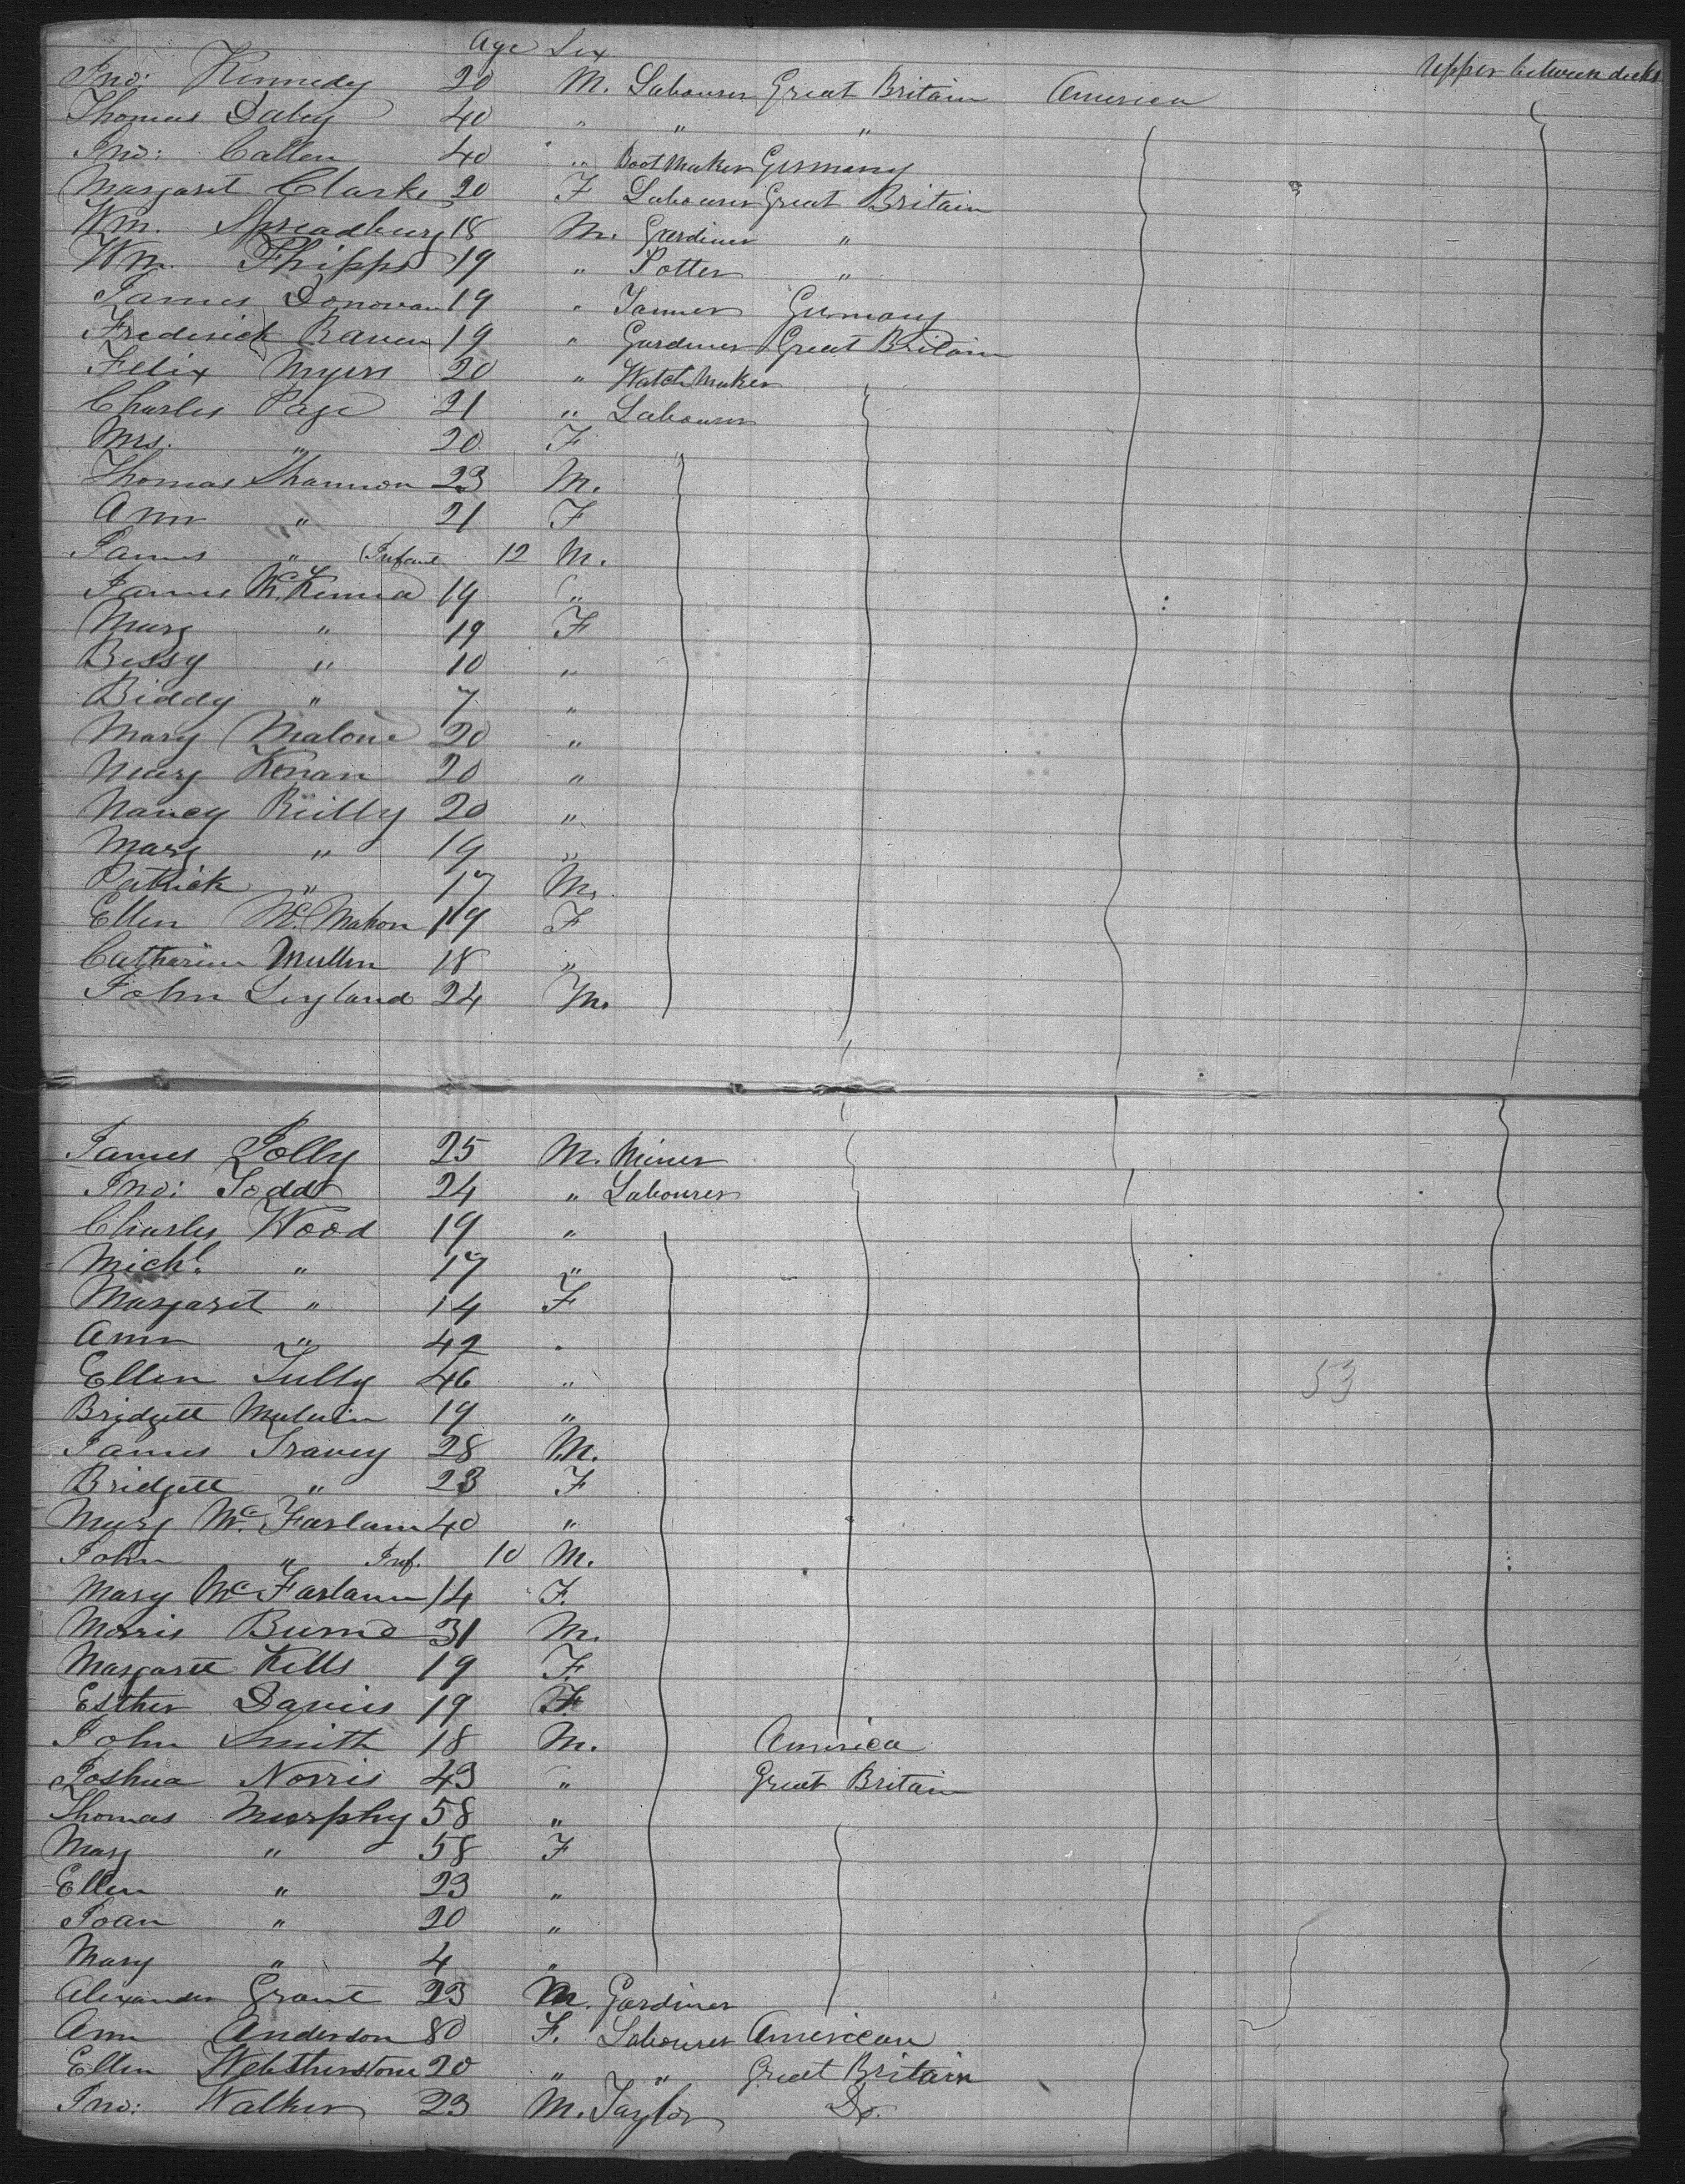 Age Sex
Upper between decks
Jno: Kennedy 20 M. Labourer Great Britain America
Thomas Daley 40 " " "
Jno: Callen 40 " Boot Maker Germany
Margaret Clarke 20 F Labourer Great Britain
Wm. Spreadbury 18 M. Gardiner "
Wm. Phipps 19 " Potter "
James Donovan 19 " Tanner Germany
Frederick Raven 19 " Gardiner Great Britain
Felix Myers 20 " Watch Maker
Charles Page 21 " Labourer
Mrs. " 20 F
Thomas Shannon 23 M.
Ann " 21 F
James " Infant 12 M.
James McKenna 19 "
Mary " 19 F
Bessy " 10 "
Biddy " 7 "
Mary Malone 20 "
Mary Kenan 20 "
Nancy Reilly 20 "
Mary " 19 "
Patrick " 17 M.
Ellen Mc.Mahon 19 F
Catharine Mullen 18 "
John Leyland 24 M.
James Jolly 25 M. Miner
Jno: Todd 24 " Labourer
Charles Wood 19 "
Michl. " 17 "
Margaret " 14 F
Ann " 42 "
Ellen Tully 46 "
53
Bridgett 19 "
James Travey 28 M.
Bridgett " 23 F
Mary Mc.Farlann 40 "
John " Inf. 10 M.
Mary McFarlann 14 F.
Morris Burne 31 M.
Margarett Kells 19 F.
Esther Davies 19 F
John Smith 18 M. America
Joshua Norris 43 " Great Britain
Thomas Murphy 58 "
Mary " 58 F
Ellen " 23 "
Joan " 20 "
Mary " 4 "
Alexander Grant 23 M. Gardiner
Ann Anderson 80 F. Labourer American
Ellen 20 " " Great Britain
Jno: Walker 23 M. Taylor Do.